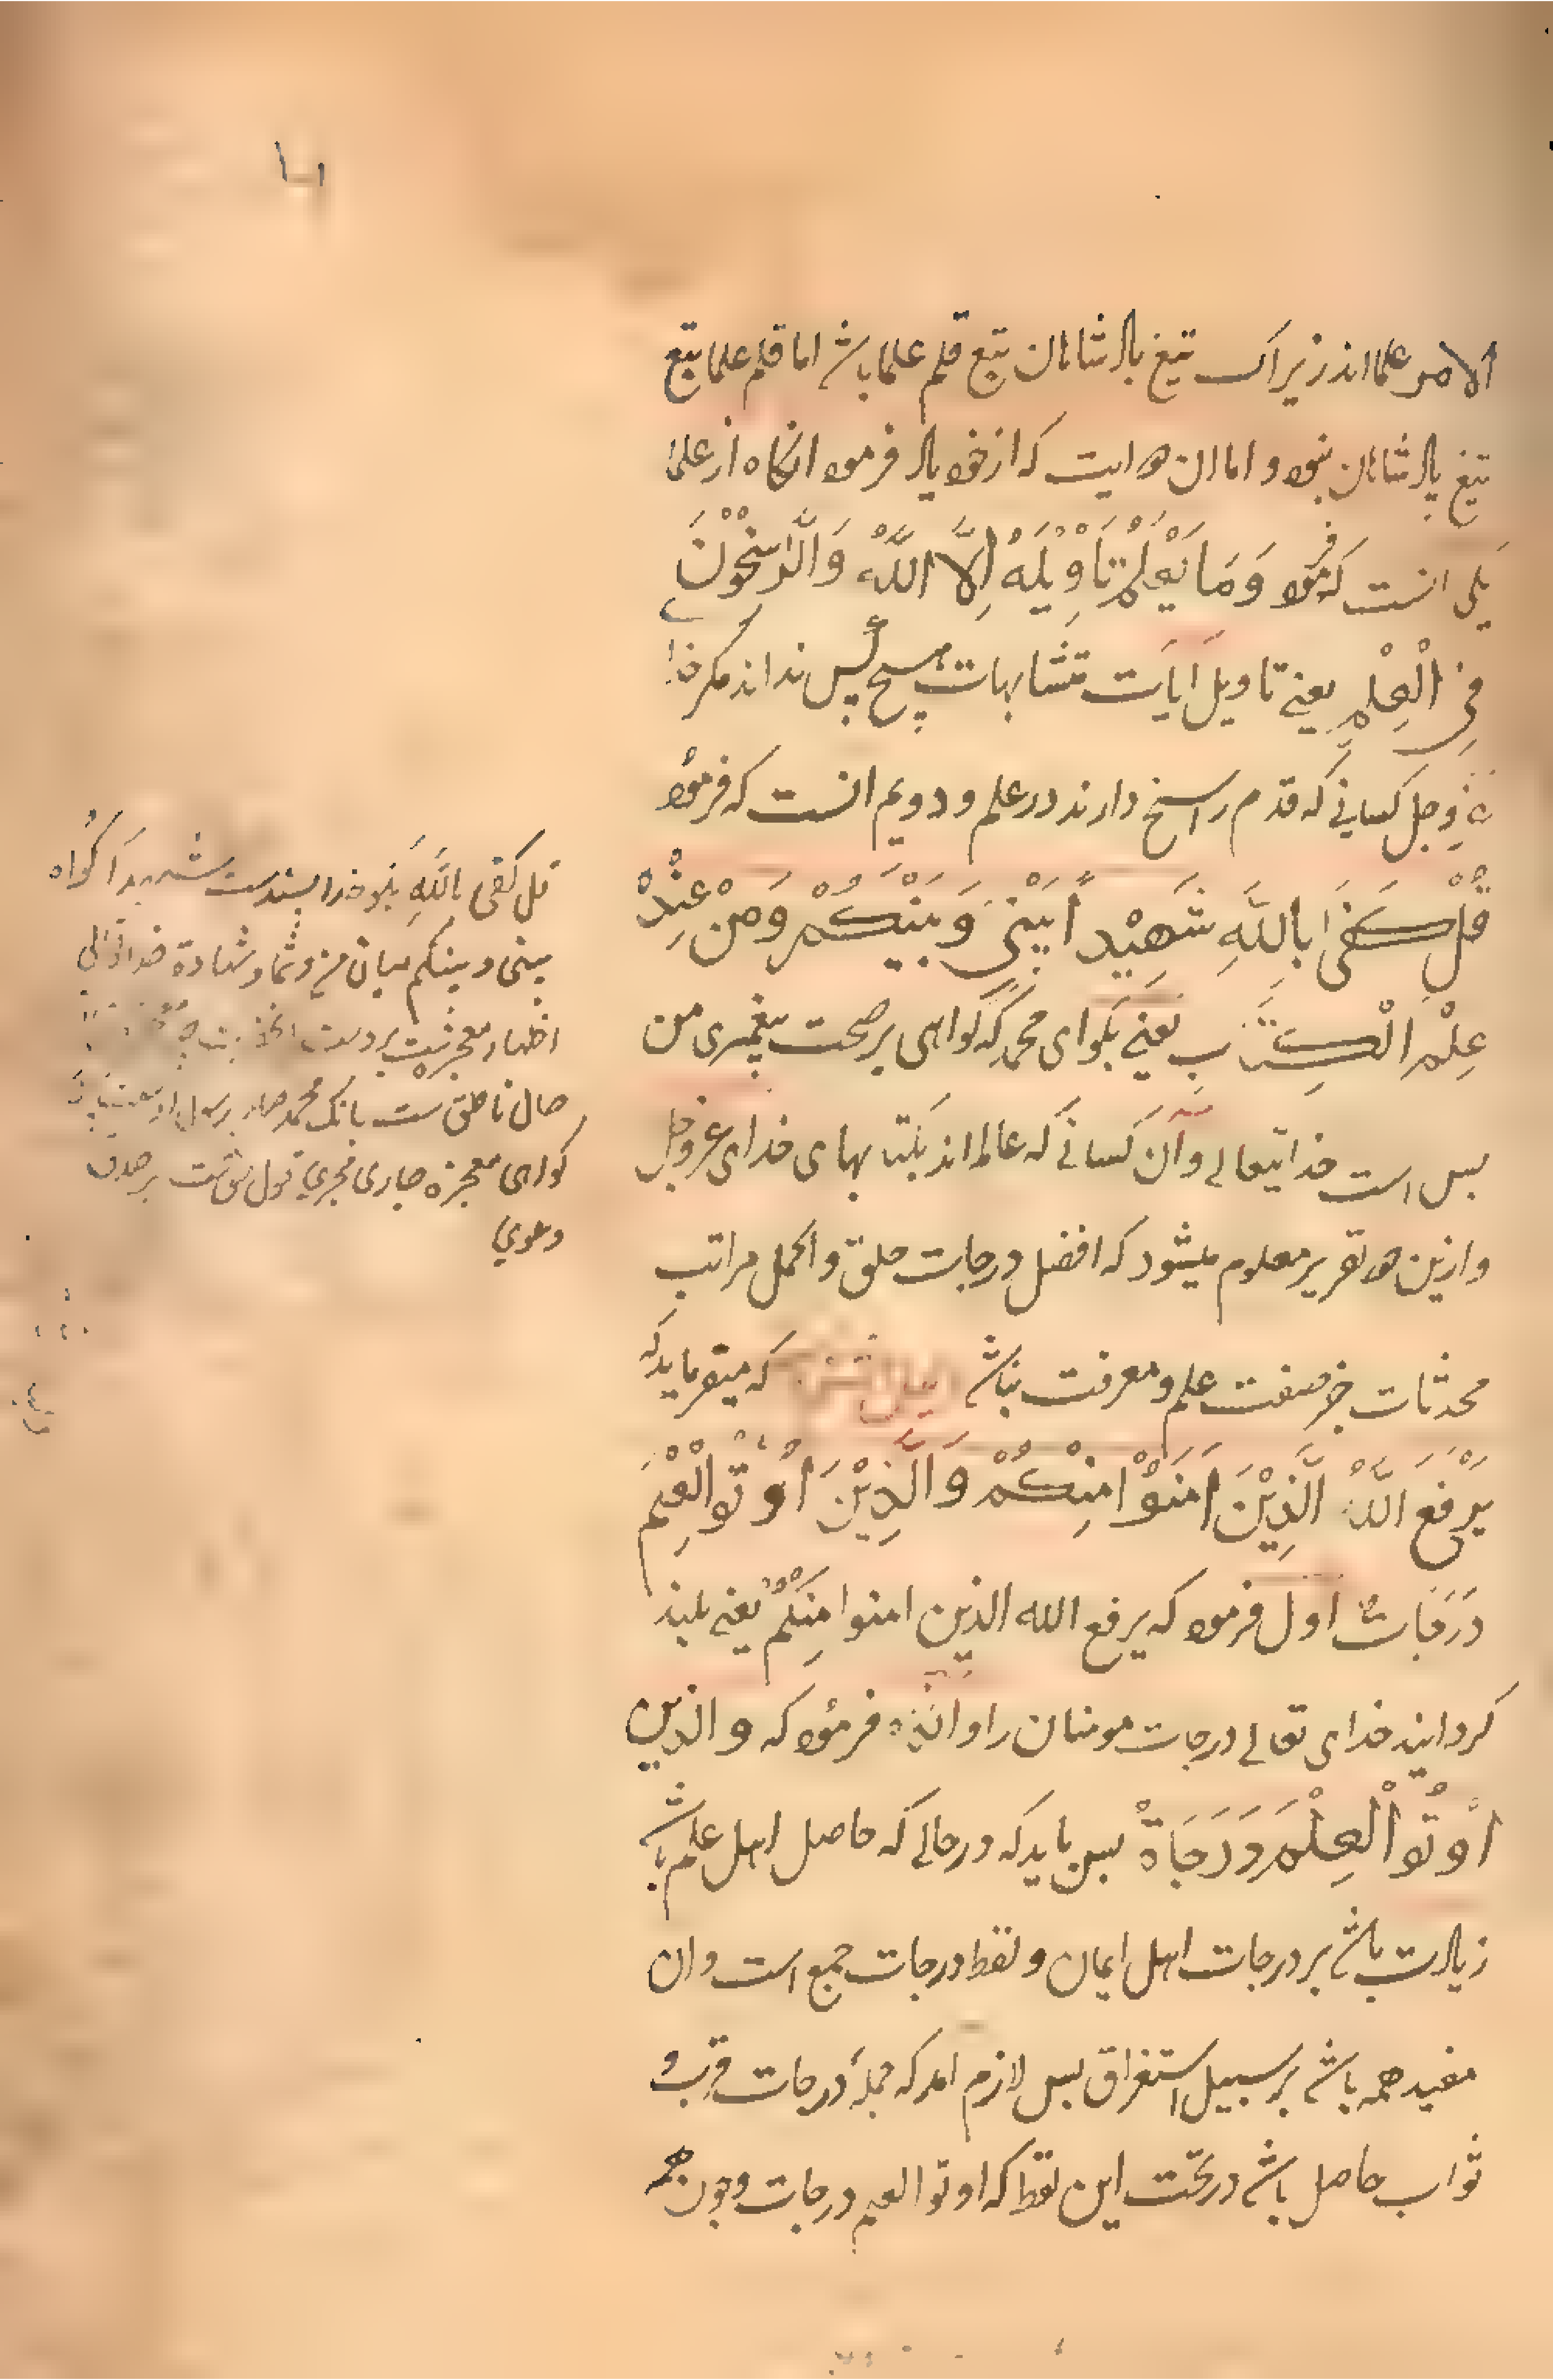 الامر علما اند زیراک تیغ پادشاهان تبع قلم علما باشد اما قلم علما تبع
تیغ پادشاهان نبود و اما ان دو ایت که از خود یاد فرمود انکاه از علما
یکی انست که فرمود وَمَا يَعْلَمُ تَأْوِيْلَهُ اِلَّا اللّٰهُ وَالرَّاسِخُوْنَ
فِي الْعِلْمِ یعنے تاویل ایات متشابهات هیچ کس نداند مکر خدا
عز وجل کسانے که قدم راسخ دارند در علم و دویم انست که فرمود
قُلْ كَفَى بِاللّٰهِ شَهِيْدًا بَيْنِي وَبَيْنَكُمْ وَمَنْ عِنْدَهُ
عِلْمُ الْكِتَابِ یعنے بکو ای محمد که کواهی بر صحت پیغمبری من
بس است خدایتعالے و آن کسانے که عالم اند بکتابهای خدای عز وجل
و ازین دو تقریر معلوم میشود که افضل درجات خلق و اکمل مراتب
محدثات جز صفت علم و معرفت نباشد که میفرماید که
يَرْفَعِ اللّٰهُ الَّذِيْنَ اٰمَنُوْا مِنْكُمْ وَالَّذِيْنَ اُوْتُوا الْعِلْمَ
دَرَجَاتٌ اول فرمود که یرفع الله الذین امنوا منكم یعنے بلند
کرداند خدای تعالے درجات مومنان را و فرمود که والذین
اُوْتُوا الْعِلْمَ دَرَجَاةٌ بس باید که درجالے که حاصل اهل علم باشد
زیادت باشد بر درجات اهل ایمان و لفظ درجات جمع است و ان
مفید همه باشد بر سبیل استغراق بس لازم امد که جملهٔ درجات قرب و
ثواب حاصل باشد در تحت این لفظ که اوتوا العلم درجات و چون همه
قل کفی باللهِ بکو خدا بسندست شهیداً کواه
بینی و بینکم میان من و شما و شهادة خدا تعالی
اظهار معجزتست بر دست
حال ناطق ست بانک محمد رسول
کواهی معجزه جاری مجری قول بر صدق
دعوی